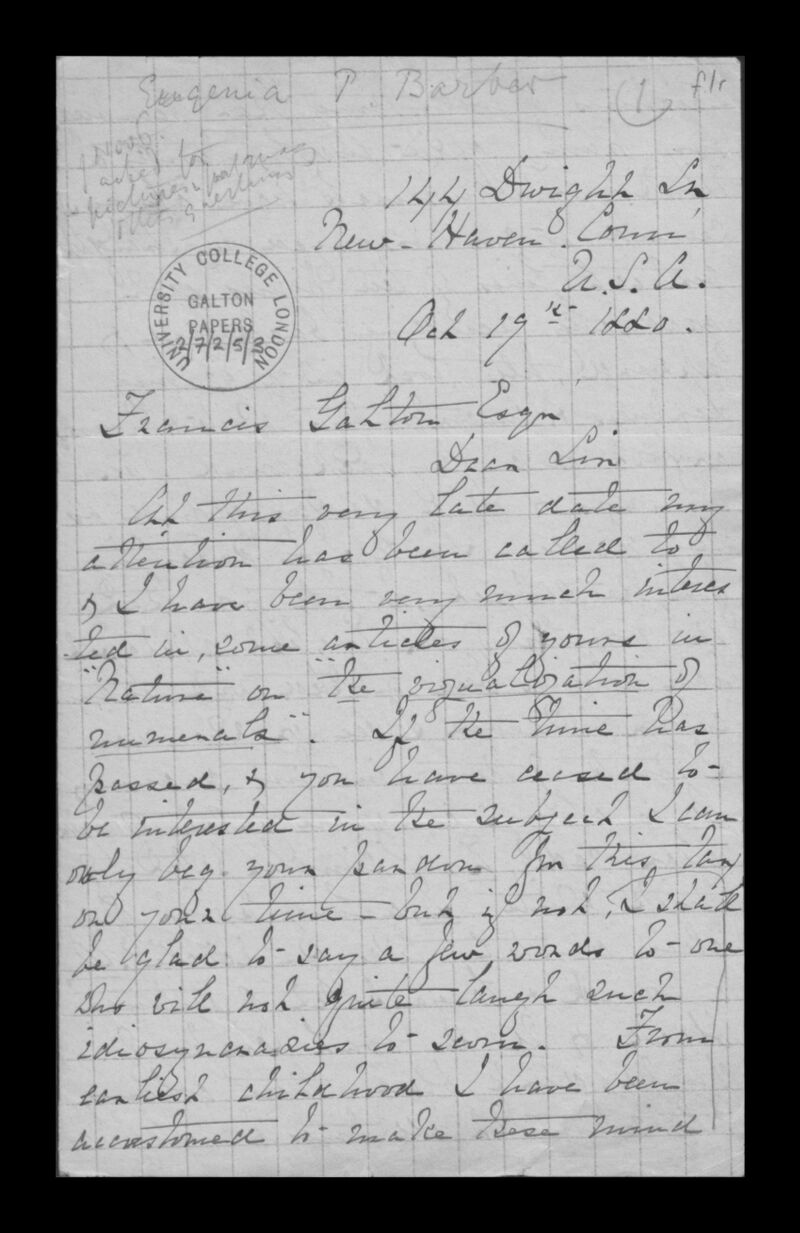 Eugenia P. Barber
(1)
f1r
Nov 2.
asked for
pictures,
other questions
144 Dwight St
New-Haven. Conn
U.S.A.
Oct 19th 1880.
UNIVERSITY COLLEGE LONDON
GALTON
PAPERS
2/7/2/5/2
Francis Galton Esqr
Dear Sir
At this very late date my
attention has been called to
& I have been very much interes
ted in, some articles of yours in
"Nature" on "the visualisation of
numerals". If the time has
passed, & you have ceased to
be interested in the subject I can
only beg your pardon for this tax
on your time – but if not, I shall
be glad to say a few words to one
who will not quite laugh such
idiosyncrasies to scorn. From
earliest childhood I have been
accustomed to make these mind